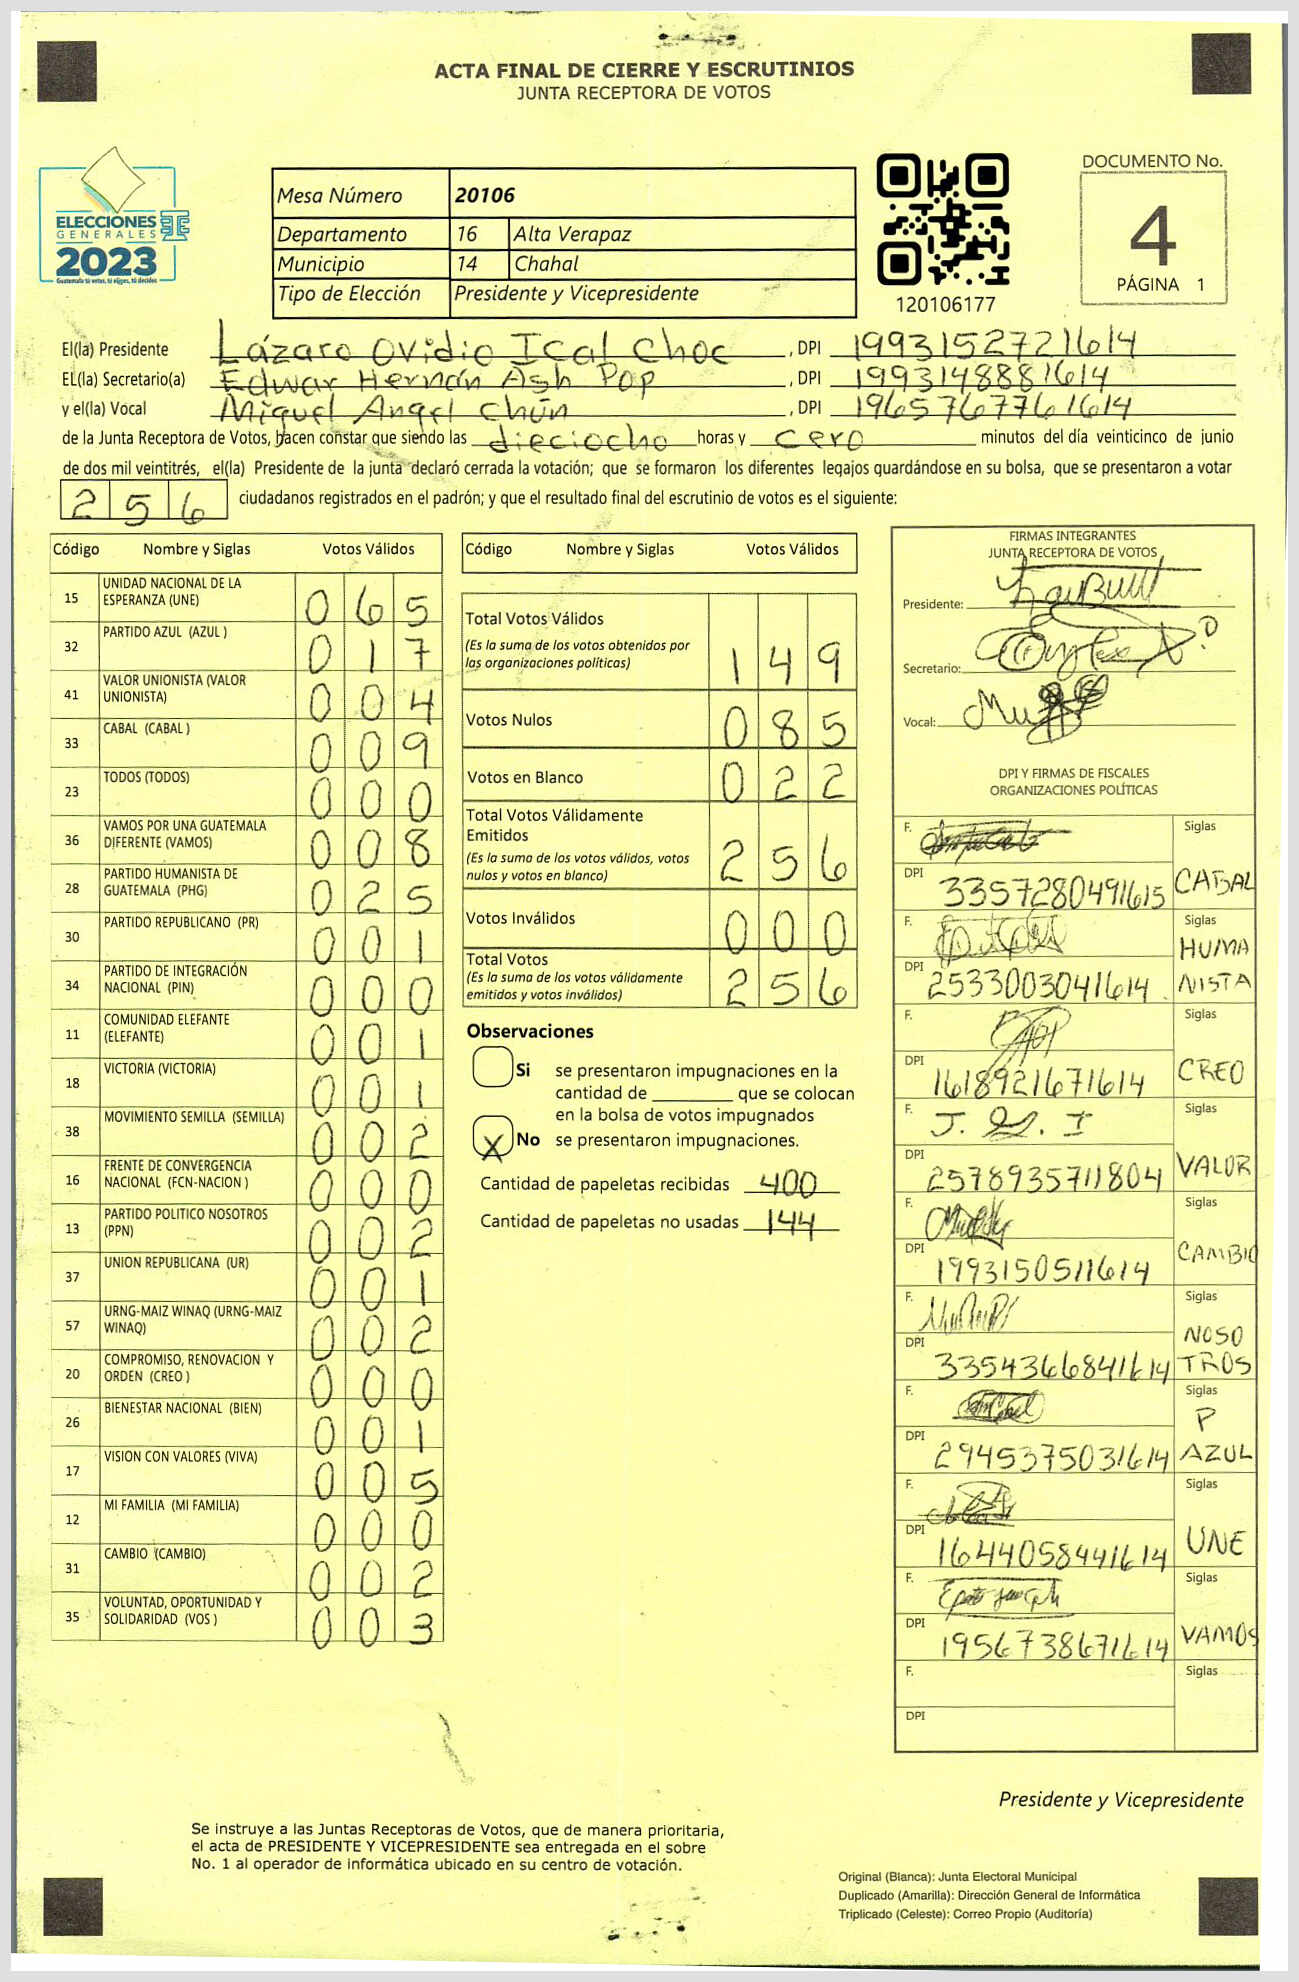 ACTA FINAL DE CIERRE Y ESCRUTINIOS
JUNTA RECEPTORA DE VOTOS
ELECCIONES
GENERALES
2023
Guatemala tú votas, tú eliges, tú decides
Mesa Número 20106
Departamento 16 Alta Verapaz
Municipio 14 Chahal
Tipo de Elección Presidente y Vicepresidente
120106177
DOCUMENTO No.
4
PÁGINA 1
El(la) Presidente Lázaro Ovidio Ical Choc, DPI 1993152721614
EL(la) Secretario(a) Edwar Hernán Ash Pop, DPI 1993148881614
y el(la) Vocal Miguel Angel Chún, DPI 1965767761614
de la Junta Receptora de Votos, hacen constar que siendo las dieciocho horas y cero minutos del día veinticinco de junio
de dos mil veintitrés, el(la) Presidente de la junta declaró cerrada la votación; que se formaron los diferentes legajos guardándose en su bolsa, que se presentaron a votar
256 ciudadanos registrados en el padrón; y que el resultado final del escrutinio de votos es el siguiente:
Código Nombre y Siglas Votos Válidos
15 UNIDAD NACIONAL DE LA ESPERANZA (UNE) 065
32 PARTIDO AZUL (AZUL ) 017
41 VALOR UNIONISTA (VALOR UNIONISTA) 004
33 CABAL (CABAL ) 009
23 TODOS (TODOS) 000
36 VAMOS POR UNA GUATEMALA DIFERENTE (VAMOS) 008
28 PARTIDO HUMANISTA DE GUATEMALA (PHG) 025
30 PARTIDO REPUBLICANO (PR) 001
34 PARTIDO DE INTEGRACIÓN NACIONAL (PIN) 000
11 COMUNIDAD ELEFANTE (ELEFANTE) 001
18 VICTORIA (VICTORIA) 001
38 MOVIMIENTO SEMILLA (SEMILLA) 002
16 FRENTE DE CONVERGENCIA NACIONAL (FCN-NACION ) 000
13 PARTIDO POLITICO NOSOTROS (PPN) 002
37 UNION REPUBLICANA (UR) 001
57 URNG-MAIZ WINAQ (URNG-MAIZ WINAQ) 002
20 COMPROMISO, RENOVACION Y ORDEN (CREO ) 000
26 BIENESTAR NACIONAL (BIEN) 001
17 VISION CON VALORES (VIVA) 005
12 MI FAMILIA (MI FAMILIA) 000
31 CAMBIO (CAMBIO) 002
35 VOLUNTAD, OPORTUNIDAD Y SOLIDARIDAD (VOS ) 003
Código Nombre y Siglas Votos Válidos
Total Votos Válidos
(Es la suma de los votos obtenidos por las organizaciones políticas) 149
Votos Nulos 085
Votos en Blanco 022
Total Votos Válidamente Emitidos
(Es la suma de los votos válidos, votos nulos y votos en blanco) 256
Votos Inválidos 000
Total Votos
(Es la suma de los votos válidamente emitidos y votos inválidos) 256
Observaciones
Si se presentaron impugnaciones en la
cantidad de ________ que se colocan
en la bolsa de votos impugnados
X No se presentaron impugnaciones.
Cantidad de papeletas recibidas 400
Cantidad de papeletas no usadas 144
FIRMAS INTEGRANTES
JUNTA RECEPTORA DE VOTOS
Presidente:
Secretario:
Vocal:
DPI Y FIRMAS DE FISCALES
ORGANIZACIONES POLÍTICAS
F. Siglas
DPI 3357280491615 CABAL
F. Siglas
DPI 2533003041614 HUMANISTA
F. Siglas
DPI 1618921671614 CREO
F. Siglas
DPI 2578935711804 VALOR
F. Siglas
DPI 1993150511614 CAMBIO
F. Siglas
DPI 3354366841614 NOSOTROS
F. Siglas
DPI 2945375031614 P AZUL
F. Siglas
DPI 1644058441614 UNE
F. Siglas
DPI 1956738671614 VAMOS
F. Siglas
DPI
Presidente y Vicepresidente
Se instruye a las Juntas Receptoras de Votos, que de manera prioritaria,
el acta de PRESIDENTE Y VICEPRESIDENTE sea entregada en el sobre
No. 1 al operador de informática ubicado en su centro de votación.
Original (Blanca): Junta Electoral Municipal
Duplicado (Amarilla): Dirección General de Informática
Triplicado (Celeste): Correo Propio (Auditoría)